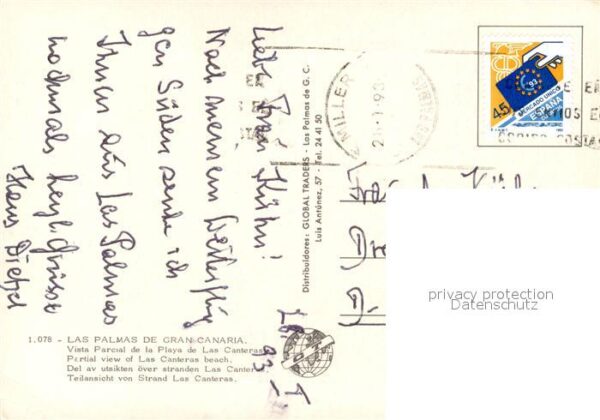 Liebe Frau Kühn!
Nach meinem Weiterflug
gen Süden sende ich
Ihnen aus Las Palmas
nochmals herzl. Grüsse
Hans Dietzel
Distribuidores: GLOBAL TRADERS - Las Palmas de G. C.
Luis Antúnez, 57 - Tel. 24 41 50
MILLER
93
45
MERCADO UNICO
ESPAÑA
Frau
privacy protection
Datenschutz
1.078 - LAS PALMAS DE GRAN CANARIA.
Vista Parcial de la Playa de Las Canteras
Partial view of Las Canteras beach.
Del av utsikten över stranden Las Canteras
Teilansicht von Strand Las Canteras.